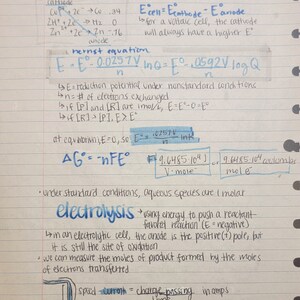 cathode
Cu²⁺ + 2e⁻ → Cu .34
2H⁺ + 2e⁻ → H₂ 0
Zn²⁺ + 2e⁻ → Zn -.76
anode
E°cell = E°cathode - E°anode
↳ for a voltaic cell, the cathode
will always have a higher E°
nernst equation
E = E° - 0.0257V/n lnQ = E° - .0592V/n log Q
↳ E = reduction potential under nonstandard conditions
↳ n = # of electrons exchanged
↳ if [P] and [R] are 1molar, E=E°-0=E°
↳ if [R] > [P], E > E°
at equilibrium, E=0, so E° = .0257V/n ln K
ΔG° = -nFE°
F = 9.6485·10⁴ J / V·mole⁻ = 9.6485·10⁴ coulombs / mol e⁻
• under standard conditions, aqueous species are 1 molar
electrolysis • using energy to push a reactant-
favored reaction (E = negative)
↳ in an electrolytic cell, the anode is the positive (+) pole, but
it is still the site of oxidation
• we can measure the moles of product formed by the moles
of electrons transferred
current = charge passing in amps